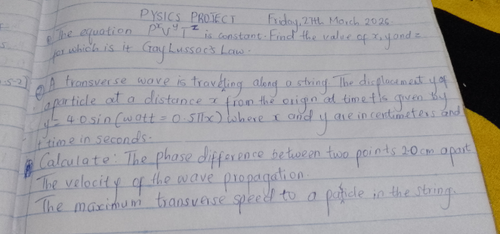 PYSICS PROJECT Friday, 27th March 2026
The equation P^x V^y T^z is constant. Find the value of x, y and z
for which is it Gay Lussac's Law.
② A transverse wave is traveling along a string. The displacement y of
a particle at a distance x from the origin at time t is given by
y = 40 sin (wott = 0.5πx) where x and y are in centimeters and
t time in seconds.
Calculate: The phase difference between two points 20cm apart
The velocity of the wave propagation.
The maximum transverse speed to a particle in the string.